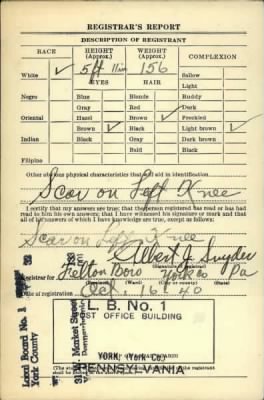 REGISTRAR'S REPORT
DESCRIPTION OF REGISTRANT
RACE HEIGHT (Approx.) WEIGHT (Approx.) COMPLEXION
White ✓ 5 ft 11 in 156 Sallow
EYES HAIR Light
Negro Blue Blonde Ruddy
Gray Red Dark
Oriental Hazel Brown ✓ Freckled
Brown ✓ Black Light brown ✓
Indian Black Gray Dark brown
Bald Black
Filipino
Other obvious physical characteristics that will aid in identification
Scar on Left Knee
I certify that my answers are true; that the person registered has read or has had
read to him his own answers; that I have witnessed his signature or mark and that
all of his answers of which I have knowledge are true, except as follows:
Scar on Left Knee
Albert J. Snyder
Registrar for Felton Boro York Co Pa
Date of registration Oct 16 40
Local Board No. 1
York County
31 Market Street
L. B. No. 1
POST OFFICE BUILDING
YORK (York Co.)
PENNSYLVANIA